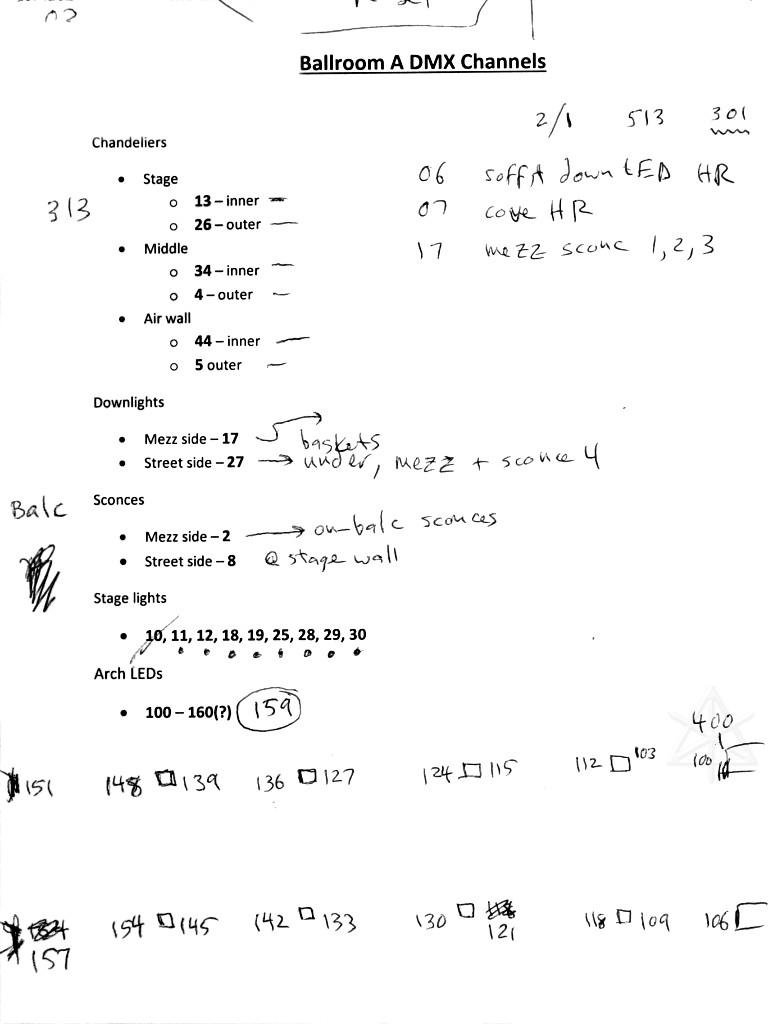 Ballroom A DMX Channels
2/1 513 301
Chandeliers
06 soffit down LED HR
• Stage
313
○ 13 – inner
07 cove HR
○ 26 – outer
• Middle
17 mezz sconc 1, 2, 3
○ 34 – inner
○ 4 – outer
• Air wall
○ 44 – inner
○ 5 outer
Downlights
• Mezz side – 17 baskets
• Street side – 27 → under, mezz + sconce 4
Balc
Sconces
• Mezz side – 2 → on-balc sconces
• Street side – 8 @ stage wall
Stage lights
• 10, 11, 12, 18, 19, 25, 28, 29, 30
Arch LEDs
• 100 – 160(?) 159
400
151 148 139 136 127 124 115 112 103 100
154 145 142 133 130 118 109 106
157 121